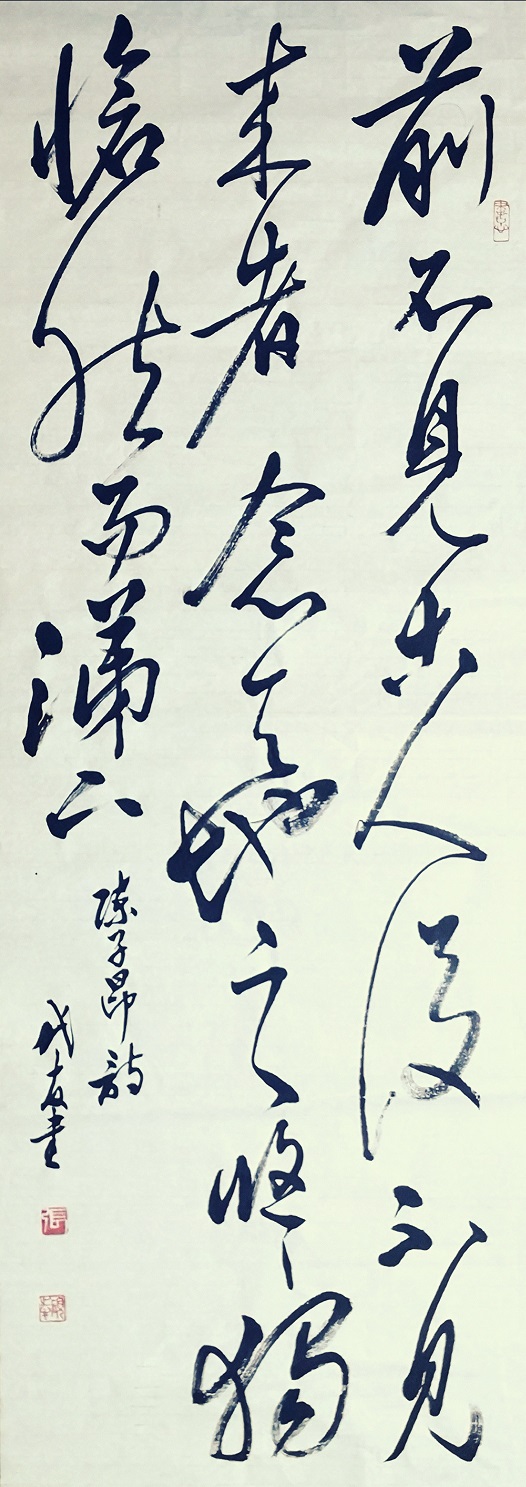 前不見古人後不見
来者念天地之悠々獨
愴然而涕下
陳子昂詩
友書
張